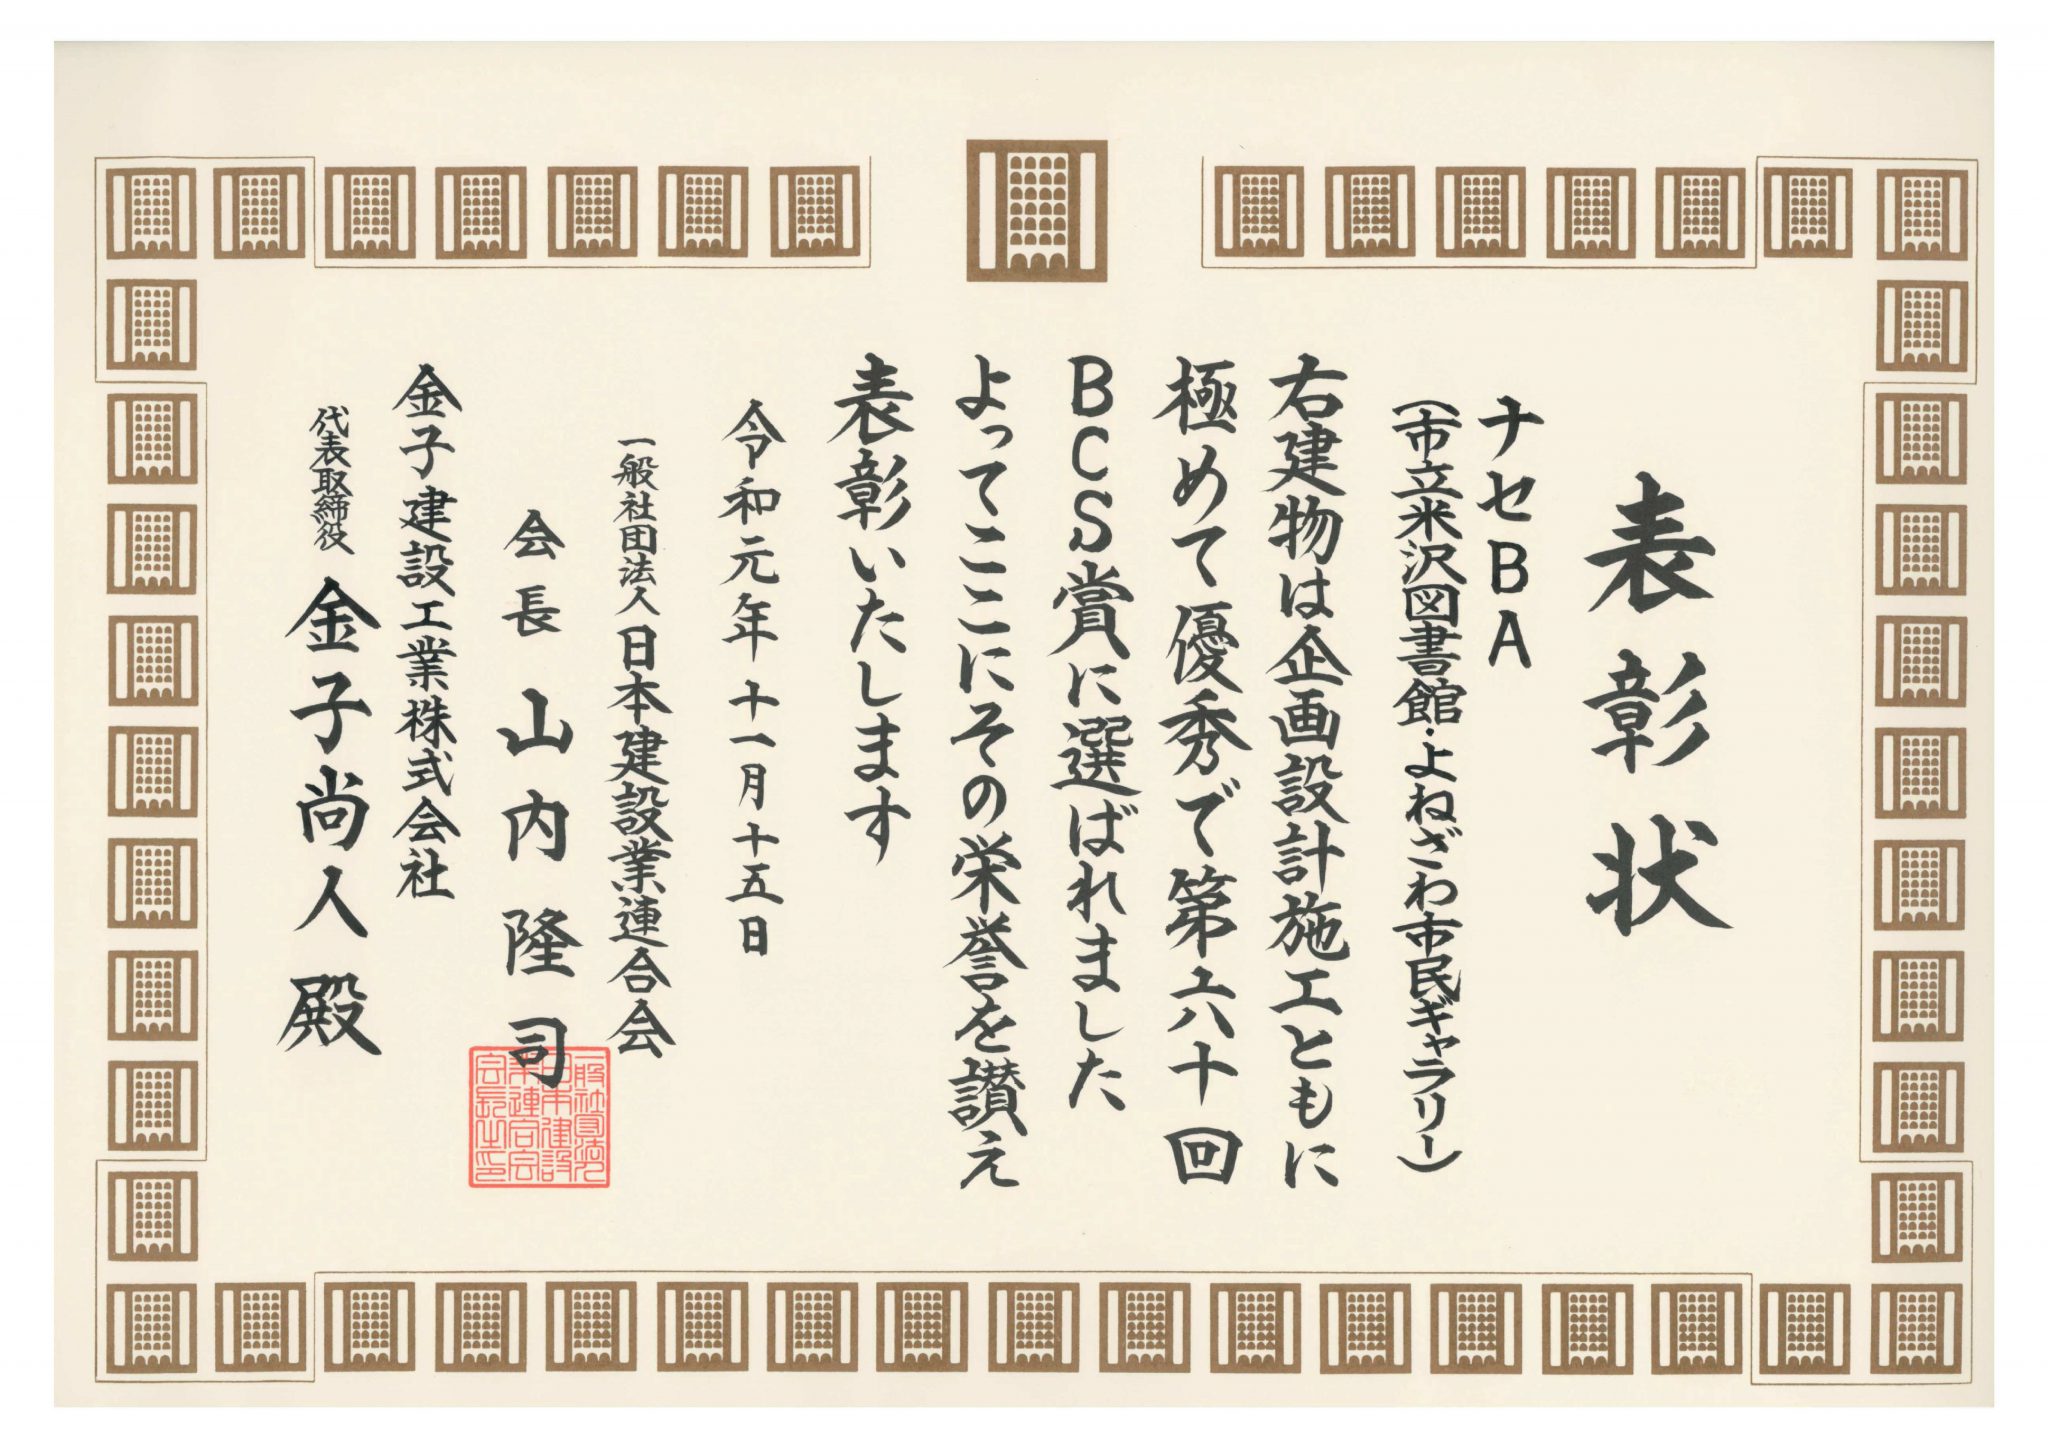 表彰状
ナセBA
（市立米沢図書館・よねざわ市民ギャラリー）
右建物は企画設計施工ともに
極めて優秀で第六十回
BCS賞に選ばれました
よってここにその栄誉を讃え
表彰いたします
令和元年十一月十五日
一般社団法人日本建設業連合会
会長 山内隆司
一般社団法人日本建設業連合会会長之印
金子建設工業株式会社
代表取締役 金子尚人殿